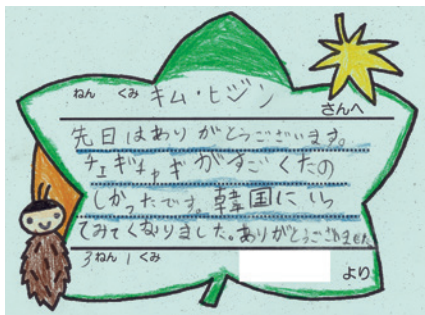 ねん くみ キム・ヒジン
さんへ
先日はありがとうございます。
チェギチャギがすごくたの
しかったです。韓国にいっ
てみてくなりました。ありがとう
3ねん1くみ
より